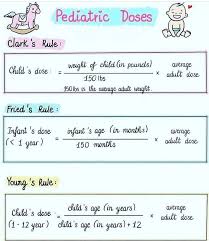 Pediatric Doses
Clark's Rule:
Child's dose = weight of child (in pounds) / 150 lbs × average adult dose
150 lbs is the average adult weight.
Fried's Rule:
Infant's dose (< 1 year) = infant's age (in months) / 150 months × average adult dose
Young's Rule:
Child's dose (1 - 12 year) = child's age (in years) / child's age (in years) + 12 × average adult dose